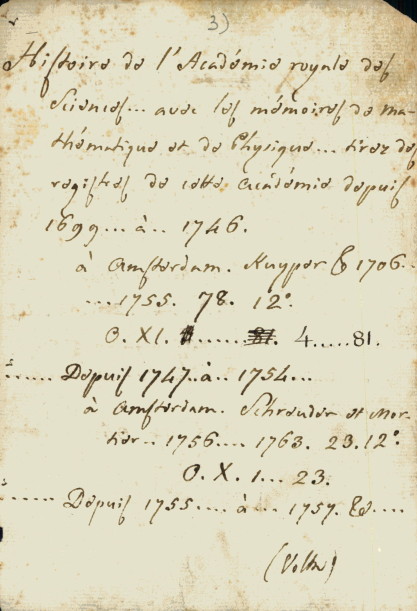 3)
Histoire de l'Académie royale des
Sciences... avec les mémoires de ma-
thématique et de Physique... tirez des
registres de cette académie depuis
1699... à.. 1746.
à Amsterdam. Kuyper & 1706...
....1755. 78. 12°.
O. XI. 4.....81.
...... Depuis 1747..à.. 1754...
à Amsterdam. Schreuder et Mor-
tier.. 1756.... 1763. 23.12°.
O. X. 1... 23.
...... Depuis 1755.... à... 1757. &....